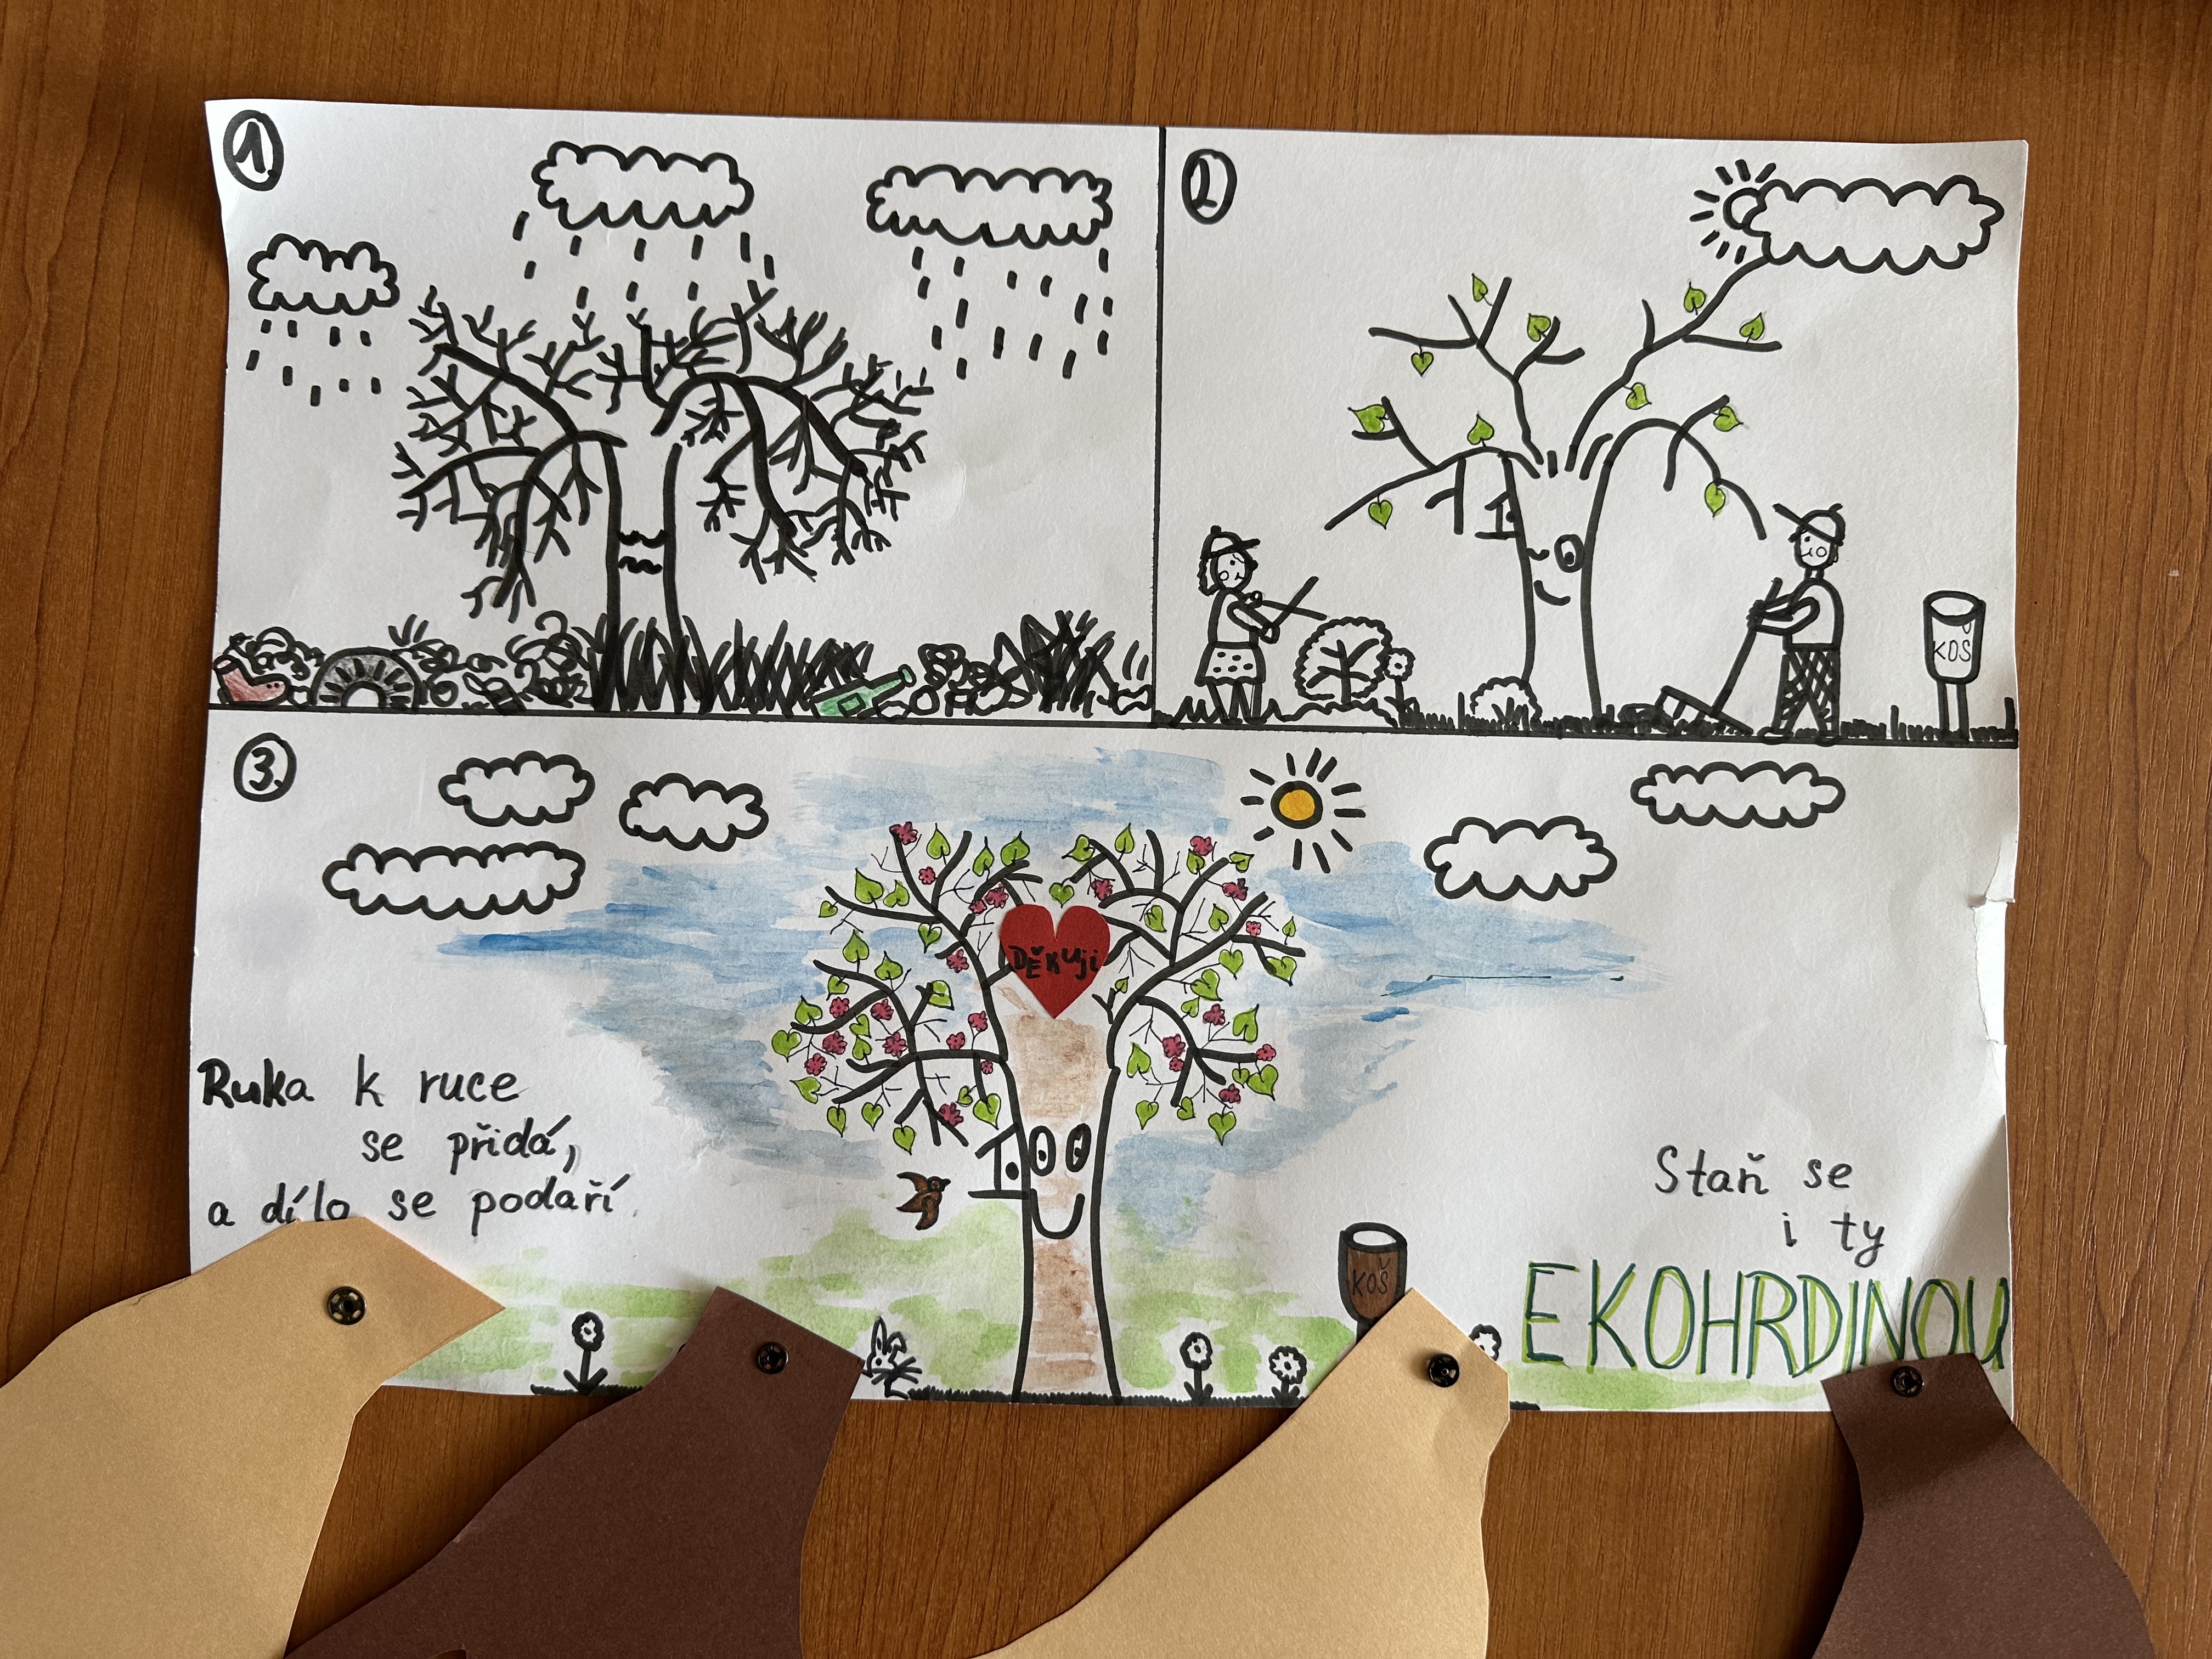 1.
2
KOŠ
3.
Děkuji
Ruka k ruce
se přidá,
a dílo se podaří.
KOŠ
Staň se
i ty
EKOHRDINOU